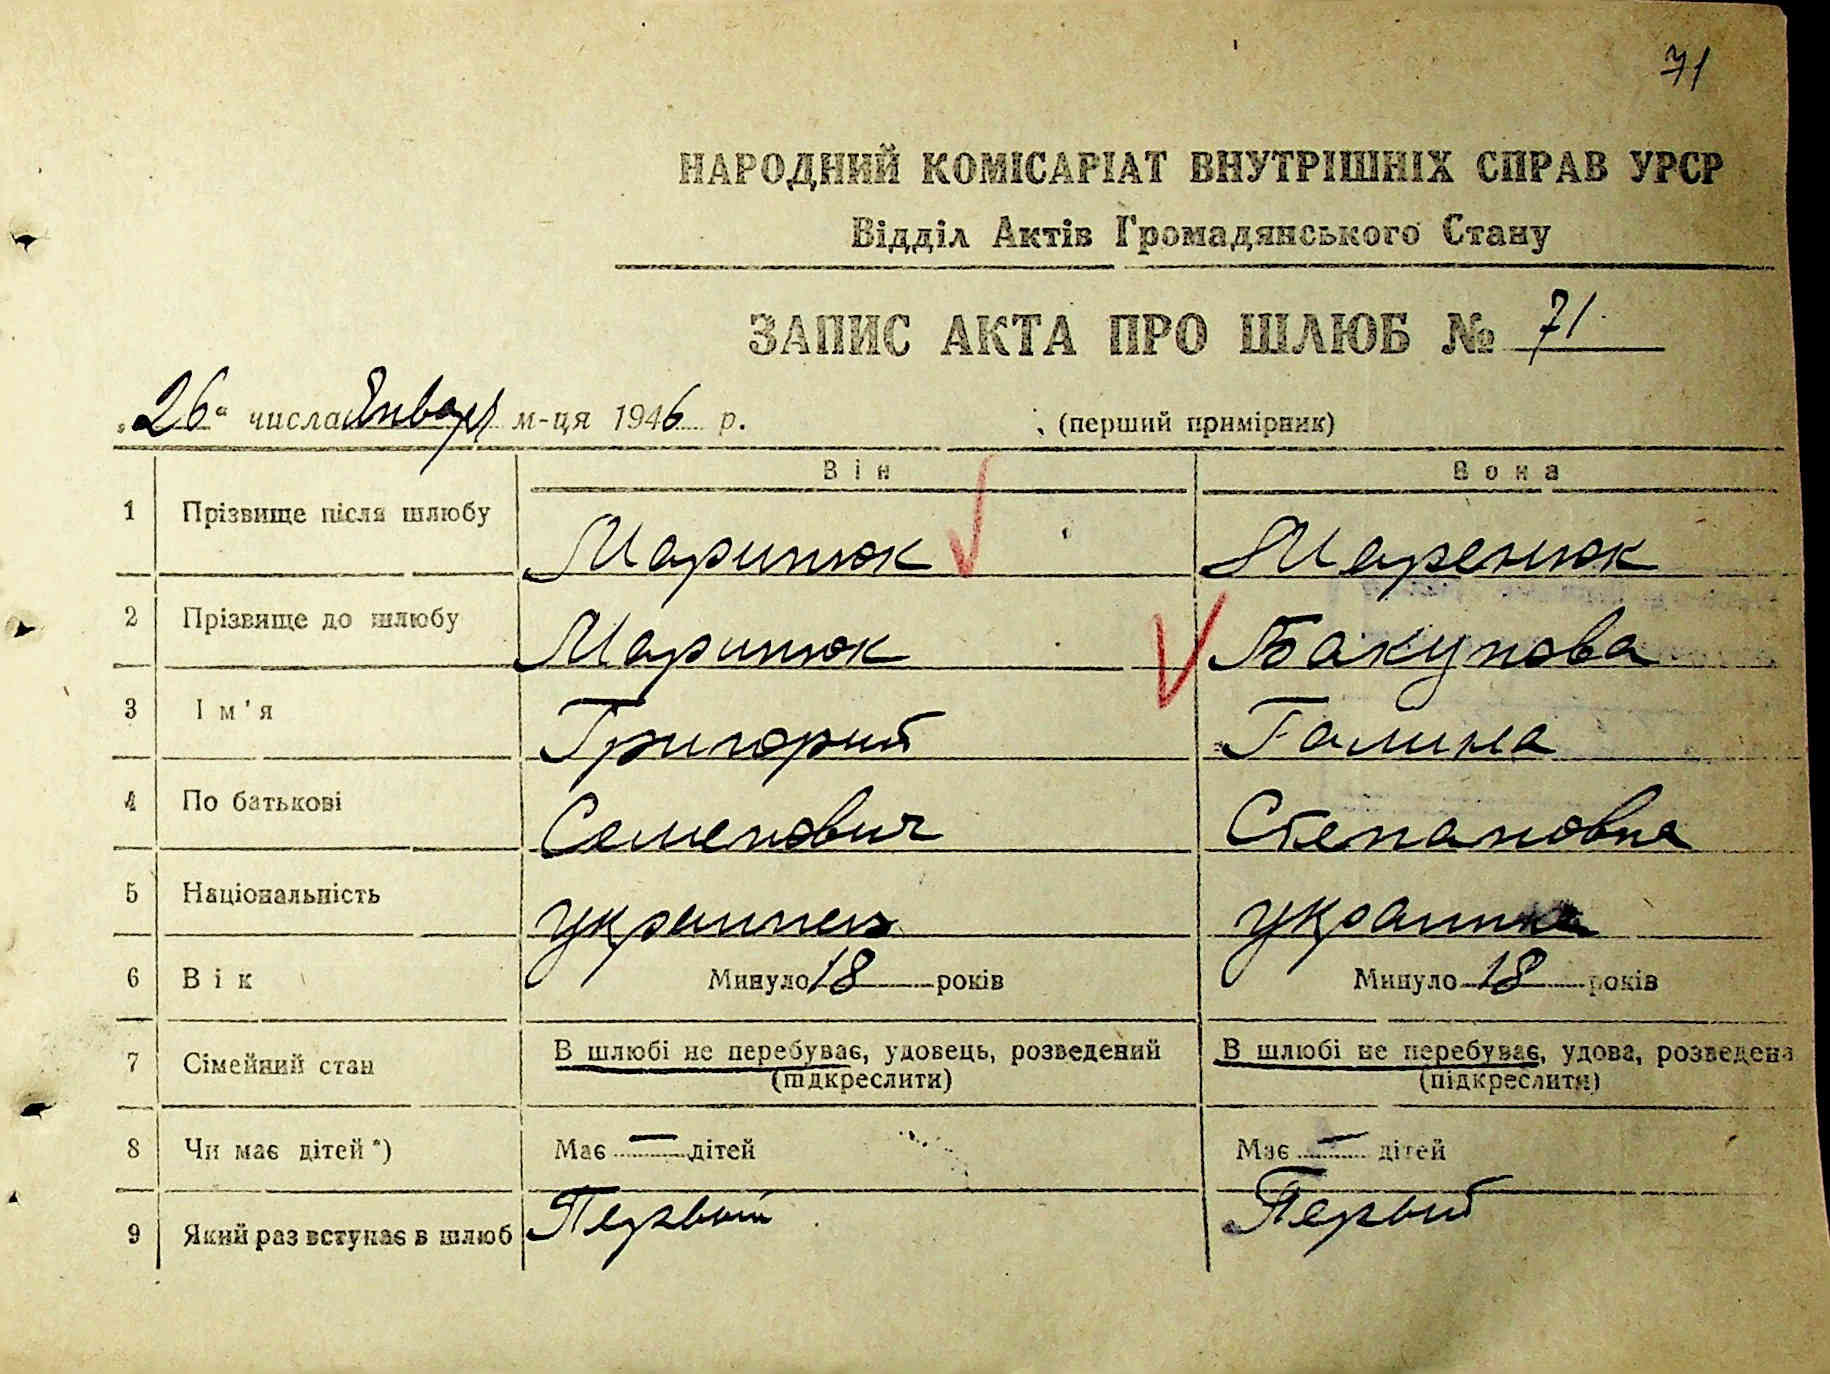 71
НАРОДНИЙ КОМІСАРІАТ ВНУТРІШНІХ СПРАВ УРСР
Відділ Актів Громадянського Стану
ЗАПИС АКТА ПРО ШЛЮБ № 71
„26“ числа Января м-ця 1946 р. (перший примірник)
Він Вона
1 Прізвище після шлюбу Маринюк Маренюк
2 Прізвище до шлюбу Маринюк Бакунова
3 Ім'я Григорий Галина
4 По батькові Семенович Степановна
5 Національність украинец украинка
6 Вік Минуло 18 років Минуло 18 років
7 Сімейний стан В шлюбі не перебуває, удовець, розведений В шлюбі не перебуває, удова, розведена
(підкреслити) (підкреслити)
8 Чи має дітей *) Має — дітей Має — дітей
9 Який раз вступає в шлюб Первый Первый